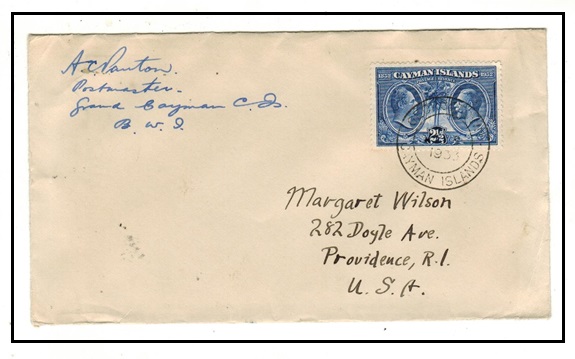 A.C. Panton.
Postmaster.
Grand Cayman C. Is.
B. W. I.
1832 CAYMAN ISLANDS 1932
2½
1933
CAYMAN ISLANDS
Margaret Wilson
282 Doyle Ave.
Providence, R.I.
U. S. A.